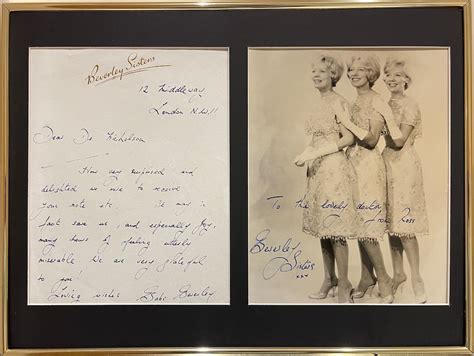 Beverley Sisters
12 Middleway
London N.W.11
Dear Dr Nicholson
How very surprised and
delighted we were to receive
your note etc. It may in
fact save us, and especially Joy,
many hours of feeling utterly
miserable. We are very grateful
to you!
Loving wishes Babs Beverley
To the lovely doctor
from
Beverley
Sisters
xxx